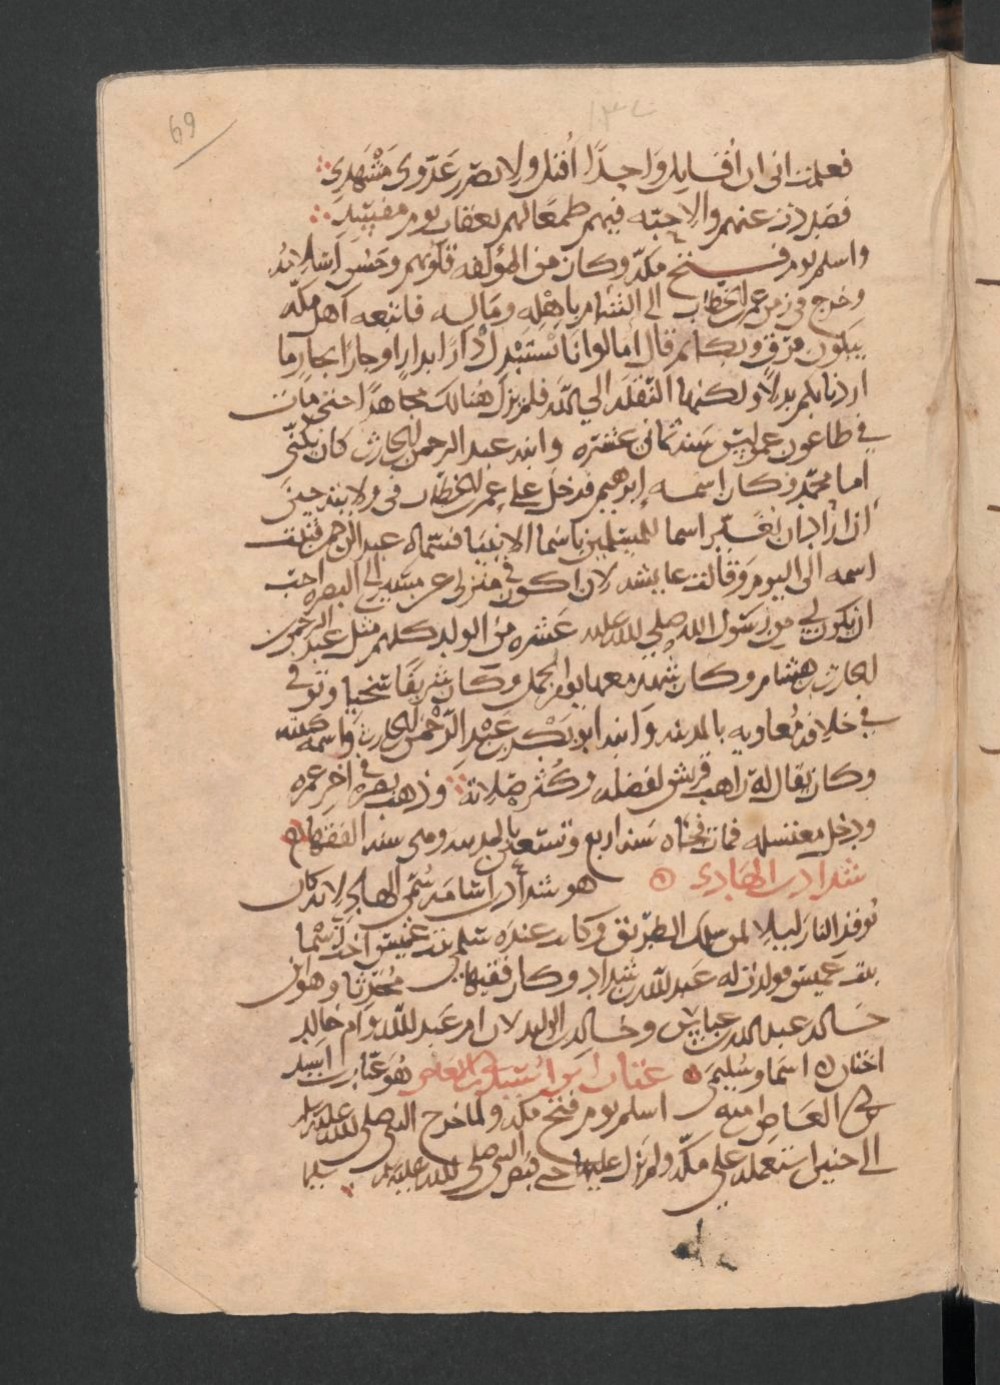 69
فعلمت انى ان أقاتل واحدًا أقتل ولا يضرر عدوى مشهدى
فصددت عنهم والاحبه فيهم طمعًا لهم بعقاب يوم مفسد
واسلم يوم فتح مكة وكان من المؤلفه قلوبهم وحسن اسلامه
وخرج فى زمن عمر بن الخطاب الى الشام باهله وماله فاتبعه اهل مكه
يبكون فرق وبكا ثم قال اما لوانا نستبدل دارًا بدار او جارا بجار ما
اردنا بكم بدلا ولكنها النقله الى الله فلم يزل هنالك مجاهدًا حتى مات
فى طاعون عمواس سنه ثمانى عشره وابنه عبد الرحمن بن الحارث كان يكنى
ابا محمد وكان اسمه ابرهيم فدخل على عمر بن الخطاب فى ولايته حين
اراد ان يغير اسما المسلمين باسما الانبيا فسماه عبد الرحمن فثبت
اسمه الى اليوم وقالت عايشه لان اكون فى منزلى عن مسيرى الى البصره احب
ان يكون لى من رسول الله صلى الله عليه عشره من الولد كلهم مثل عبد الرحمن
بن الحارث بن هشام وكان شهد معها يوم الجمل وكان شريفًا سخيا وتوفى
فى خلافه معاويه بالمدينه وابنه ابو بكر بن عبد الرحمن بن الحارث واسمه كنيته
وكان يقال له راهب قريش لفضله وكثره صلاته وذهب بصره فى اخر عمره
ودخل مغتسله فمات فجاه سنه اربع وتسعين بالمدينه وهى سنه الفقهاء
شداد بن الهادى هو شداد بن اسامه سمى الهادى لانه كان
يوقد النار ليلا لمن سلك الطريق وكانت عنده سلمى بنت عميس اخت اسما
بنت عميس فولدت له عبد الله بن شداد وكان فقيها محدثا وهو ابن
خاله عبد الله بن عباس وخالد بن الوليد لان ام عبد الله وام خالد
اختان لاسما وسلمى عتاب بن اسيد بن ابى العاص هو عتاب بن اسيد
بن ابى العاص بن اميه اسلم يوم فتح مكه ولما خرج النبى صلى الله عليه
الى حنين استعمله على مكه ولم يزل عليها حتى قبض النبى صلى الله عليه